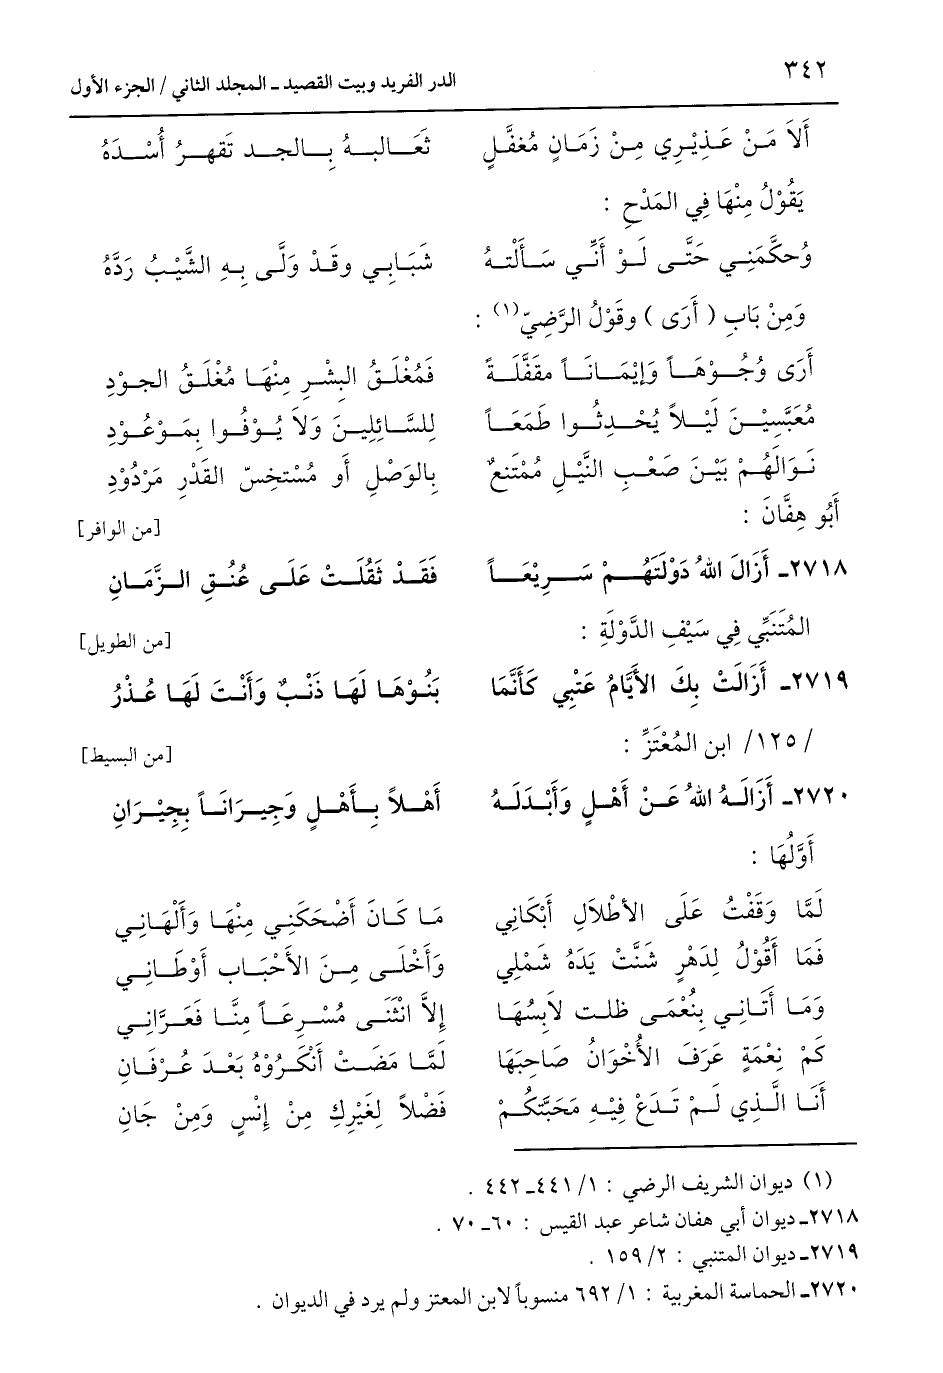 ٣٤٢
الدر الفريد وبيت القصيد ـ المجلد الثاني / الجزء الأول
أَلاَ مَنْ عَذِيْرِي مِنْ زَمَانٍ مُغفَّلٍ ثَعَالبهُ بِالجد تَقهرُ أُسْدَهُ
يَقُوْلُ مِنْهَا فِي المَدْحِ :
وُحكَّمَنِي حَتَّى لَوْ أَنِّي سَأَلْتهُ شَبَابِي وقَدْ وَلَّى بِهِ الشَّيْبُ رَدَّهُ
وَمِنْ بَابِ ( أَرَى ) وقَوْلُ الرَّضِيّ(١) :
أَرَى وُجُوْهَاً وَإيْمَانَاً مقفَّلَةً فَمُغْلَقُ البشْرِ مِنْهَا مُغْلَقُ الجوْدِ
مُعَبَّسِيْنَ لَيْلاً يُحْدِثُوا طَمَعَاً لِلسَّائِلِينَ وَلاَ يُوْفُوا بِمَوْعُوْدِ
نَوَالَهُمْ بَيْنَ صَعْبِ النَّيْلِ مُمْتَنعٌ بِالوَصْلِ أو مُسْتخِسّ القَدْرِ مَرْدُوْدِ
أَبُو هِفَّانَ : [من الوافر]
٢٧١٨ـ أَزَالَ اللهُ دَوْلَتَهُمْ سَرِيْعَاً فَقَدْ ثَقُلَتْ عَلَى عُنُقِ الزَّمَانِ
المُتَنَبِّي فِي سَيْفِ الدَّوْلَةِ : [من الطويل]
٢٧١٩ـ أَزَالَتْ بِكَ الأَيَّامُ عَتْبِي كَأنَّمَا بَنُوْهَا لَهَا ذَنْبٌ وَأَنْتَ لَهَا عُذْرُ
/ ١٢٥/ ابن المُعْتَزِّ : [من البسيط]
٢٧٢٠ـ أَزَالَهُ اللهُ عَنْ أهْلٍ وَأَبْدَلَهُ أَهْلاً بِأَهْلٍ وَجِيرَانَاً بِجِيْرَانِ
أَوَّلُهَا :
لَمَّا وَقَفْتُ عَلَى الأطْلاَلِ أَبْكَانِي مَا كَانَ أَضْحَكنِي مِنْهَا وَأَلْهَانِي
فَمَا أَقُوْلُ لِدَهْرٍ شَتَّتْ يَدَهُ شَمْلِي وَأَخْلَى مِنَ الأَحْبَابِ أَوْطَانِي
وَمَا أَتَانِي بِنُعْمَى ظلت لاَبِسُهَا إِلاَّ انْثَنَى مُسْرِعَاً مِنَّا فَعَرَّانِي
كَمْ نِعْمَةٍ عَرَفَ الأُخْوَانُ صَاحِبَهَا لَمَّا مَضَتْ أَنْكَرُوْهُ بَعْدَ عُرْفَانِ
أَنَا الَّذِي لَمْ تَدَعْ فِيْهِ مَحَبَّتكُمْ فَضْلاً لِغَيْرِكِ مِنْ إِنْسٍ وَمِنْ جَانِ
(١) ديوان الشريف الرضي : ١/ ٤٤١ـ ٤٤٢ .
٢٧١٨ـ ديوان أبي هفان شاعر عبد القيس : ٦٠ـ ٧٠ .
٢٧١٩ـ ديوان المتنبي : ٢/ ١٥٩ .
٢٧٢٠ـ الحماسة المغربية : ١/ ٦٩٢ منسوباً لابن المعتز ولم يرد في الديوان .